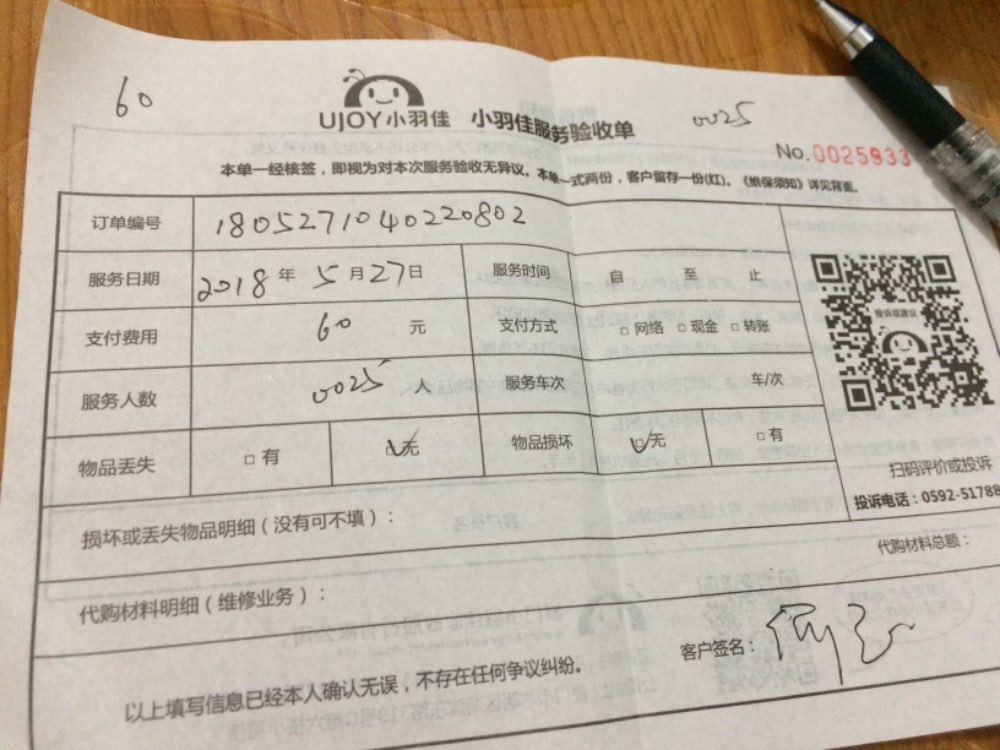 60
UJOY小羽佳 小羽佳服务验收单
0025
No.0025933
本单一经核签，即视为对本次服务验收无异议。本单一式两份，客户留存一份(红)。《维保须知》详见背面。
订单编号 1805271040220802
服务日期 2018 年 5 月 27 日 服务时间 自 至 止
支付费用 60 元 支付方式 □网络 □现金 □转账
服务人数 0025 人 服务车次 车/次
物品丢失 □有 □无 物品损坏 □无 □有
投诉或建议
扫码评价或投诉
投诉电话：0592-51788
损坏或丢失物品明细（没有可不填）：
代购材料总额：
代购材料明细（维修业务）：
客户签名：
以上填写信息已经本人确认无误，不存在任何争议纠纷。